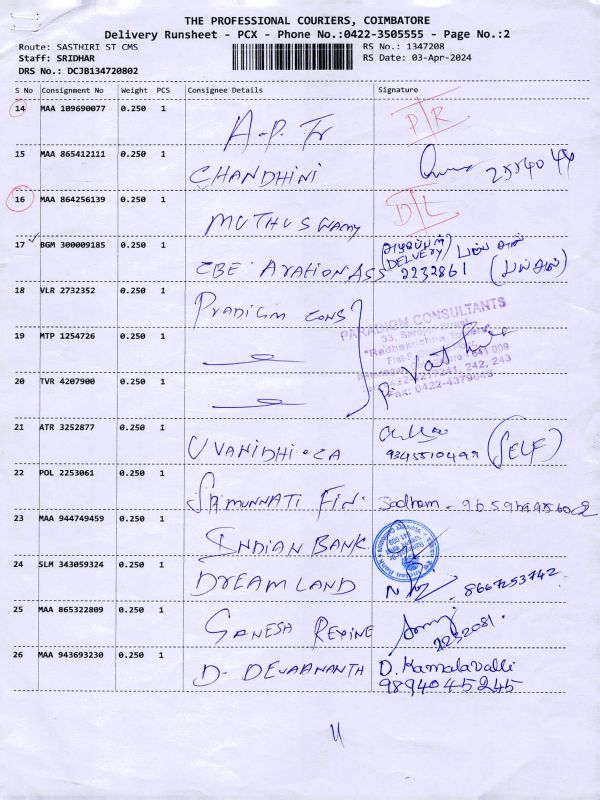 THE PROFESSIONAL COURIERS, COIMBATORE
Delivery Runsheet - PCX - Phone No.:0422-3505555 - Page No.:2
Route: SASTHIRI ST CMS
RS No.: 1347208
Staff: SRIDHAR
RS Date: 03-Apr-2024
DRS No.: DCJB134720802
S No Consignment No Weight PCS Consignee Details Signature
14 MAA 109690077 0.250 1 A.P. Tr P/R
15 MAA 865412111 0.250 1 CHANDHINI
16 MAA 864256139 0.250 1 MUTHUSWAMY D/L
17 BGM 300009185 0.250 1 CBE AVATION ASS (DELIVERY) 2232861
18 VLR 2732352 0.250 1 PRADIGM CONS
PARADIGM CONSULTANTS
"Radhakrishna Towers"
19 MTP 1254726 0.250 1
241, 242, 243
Fax: 0422-4379843
20 TVR 4207900 0.250 1
21 ATR 3252877 0.250 1 UVANIDHI.CA (SELF)
22 POL 2253061 0.250 1 SAMUNNATI FIN.
23 MAA 944749459 0.250 1 INDIAN BANK
24 SLM 343059324 0.250 1 DREAM LAND 8667253742
25 MAA 865322809 0.250 1 GANESA REXINE 2232081
26 MAA 943693230 0.250 1 D. DEVAANANTH D. Kamalavalli
9894045245